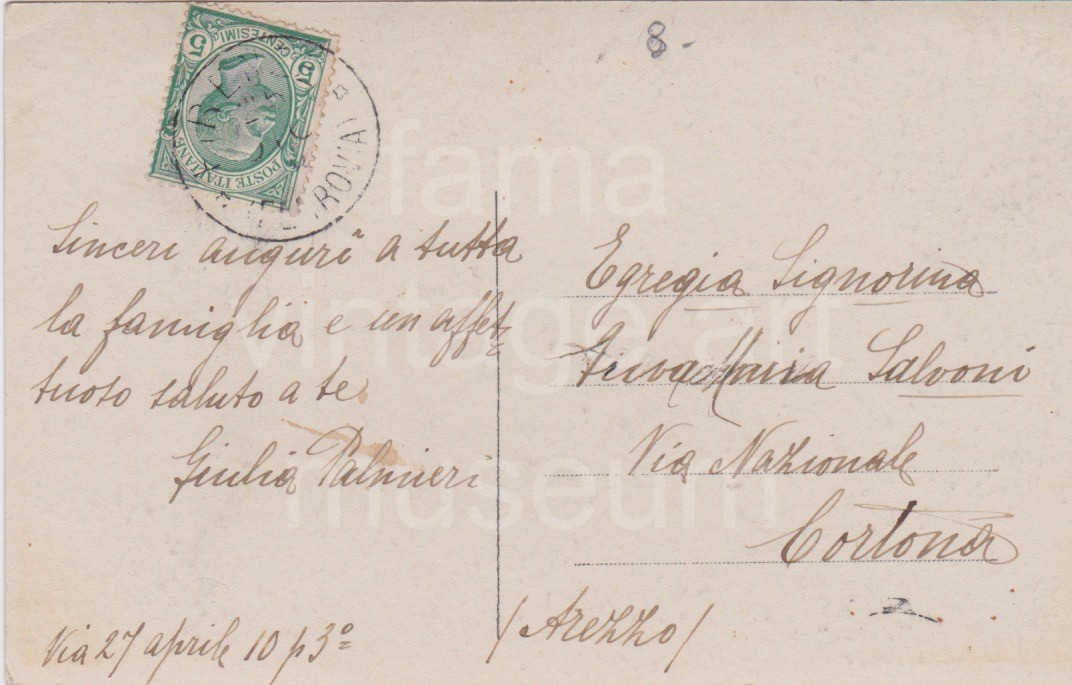 8
5 5
CENTESIMI
POSTE ITALIANE
FERROVIA
Sinceri auguri a tutta
la famiglia e un affet-
tuoso saluto a te
Giulia Palmieri
Via 27 aprile 10 p 3º
Egregia Signorina
Salvoni
Via Nazionale
Cortona
(Arezzo)
fama
vintage art
museum